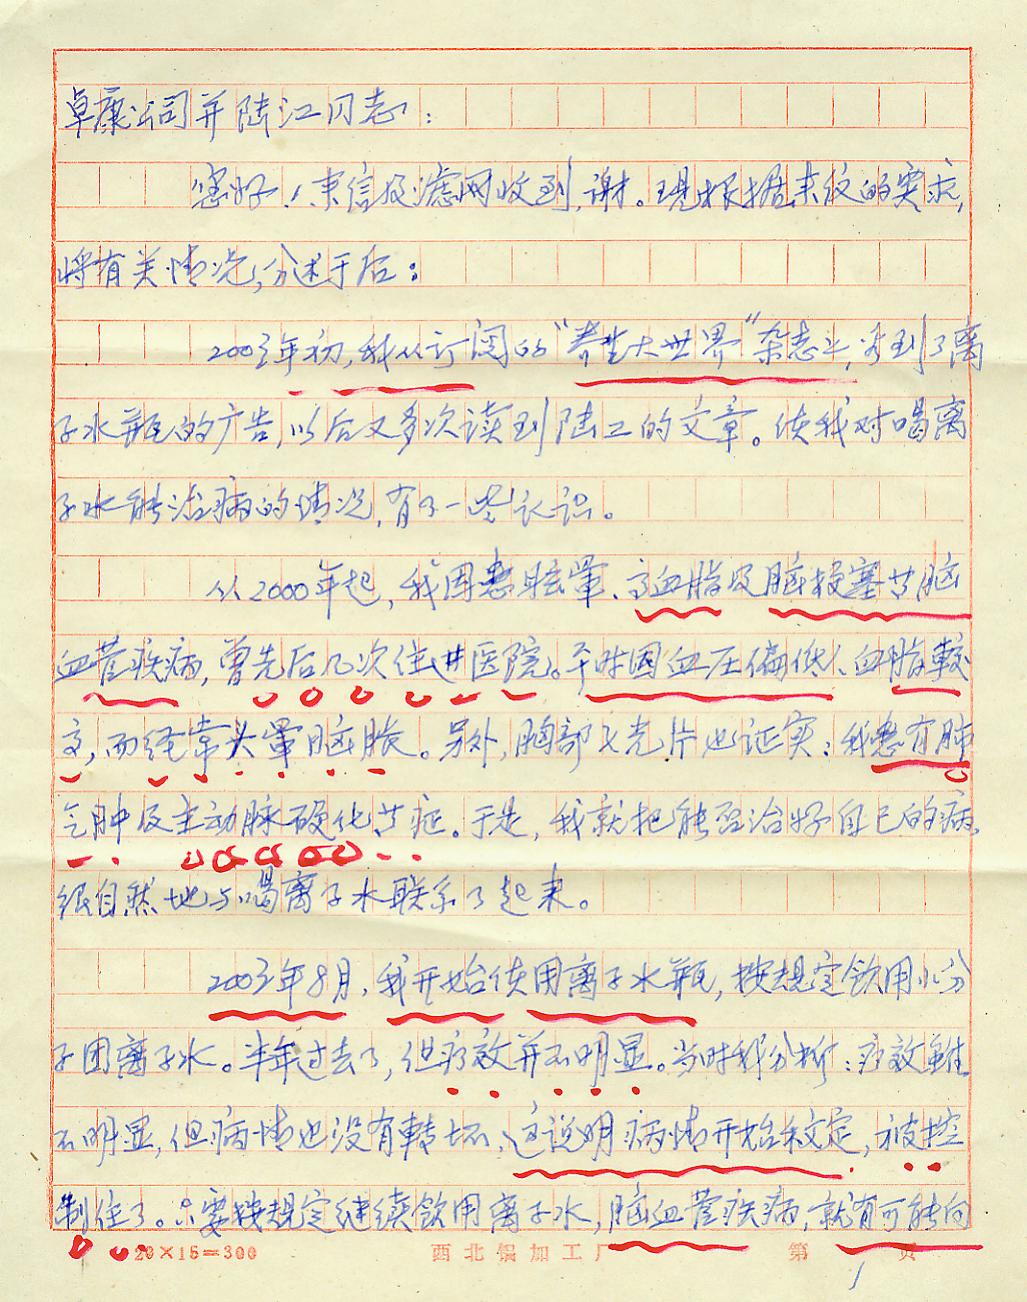 卓康公司并陆江同志：
您好！来信及滤网收到，谢谢。现根据来纹的要求，
将有关情况，分述于后：
2003年初，我从订阅的“养生大世界”杂志上，看到了离
子水瓶的广告，以后又多次读到陆工的文章。使我对喝离
子水能治病的情况，有了一些认识。
从2000年起，我因患眩晕、高血脂及脑梗塞等脑
血管疾病，曾先后几次住进医院。平时因血压偏低、血脂较
高，而经常头晕脑胀。另外，胸部X光片也证实：我患有肺
气肿及主动脉硬化等症。于是，我就把能否治好自己的病，
很自然地与喝离子水联系了起来。
2003年8月，我开始使用离子水瓶，按规定饮用小分
子团离子水。半年过去了，但疗效并不明显。当时我分析：疗效虽
不明显，但病情也没有转坏，这说明病情开始稳定，被控
制住了。只要按规定继续饮用离子水，脑血管疾病，就有可能向
20×15=300 西北锅加工厂 第1页